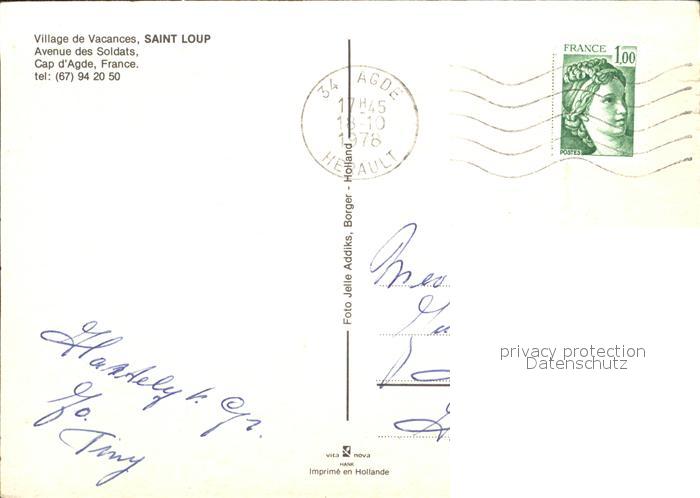 Village de Vacances, SAINT LOUP
Avenue des Soldats,
Cap d'Agde, France.
tel: (67) 94 20 50
34 AGDE
17H45
18-10
1978
HERAULT
FRANCE 1,00
POSTES
Foto Jelle Addiks, Borger - Holland
Hartely k. Gr.
Jo.
Tiny
privacy protection
Datenschutz
vita nova
HANK
Imprimé en Hollande